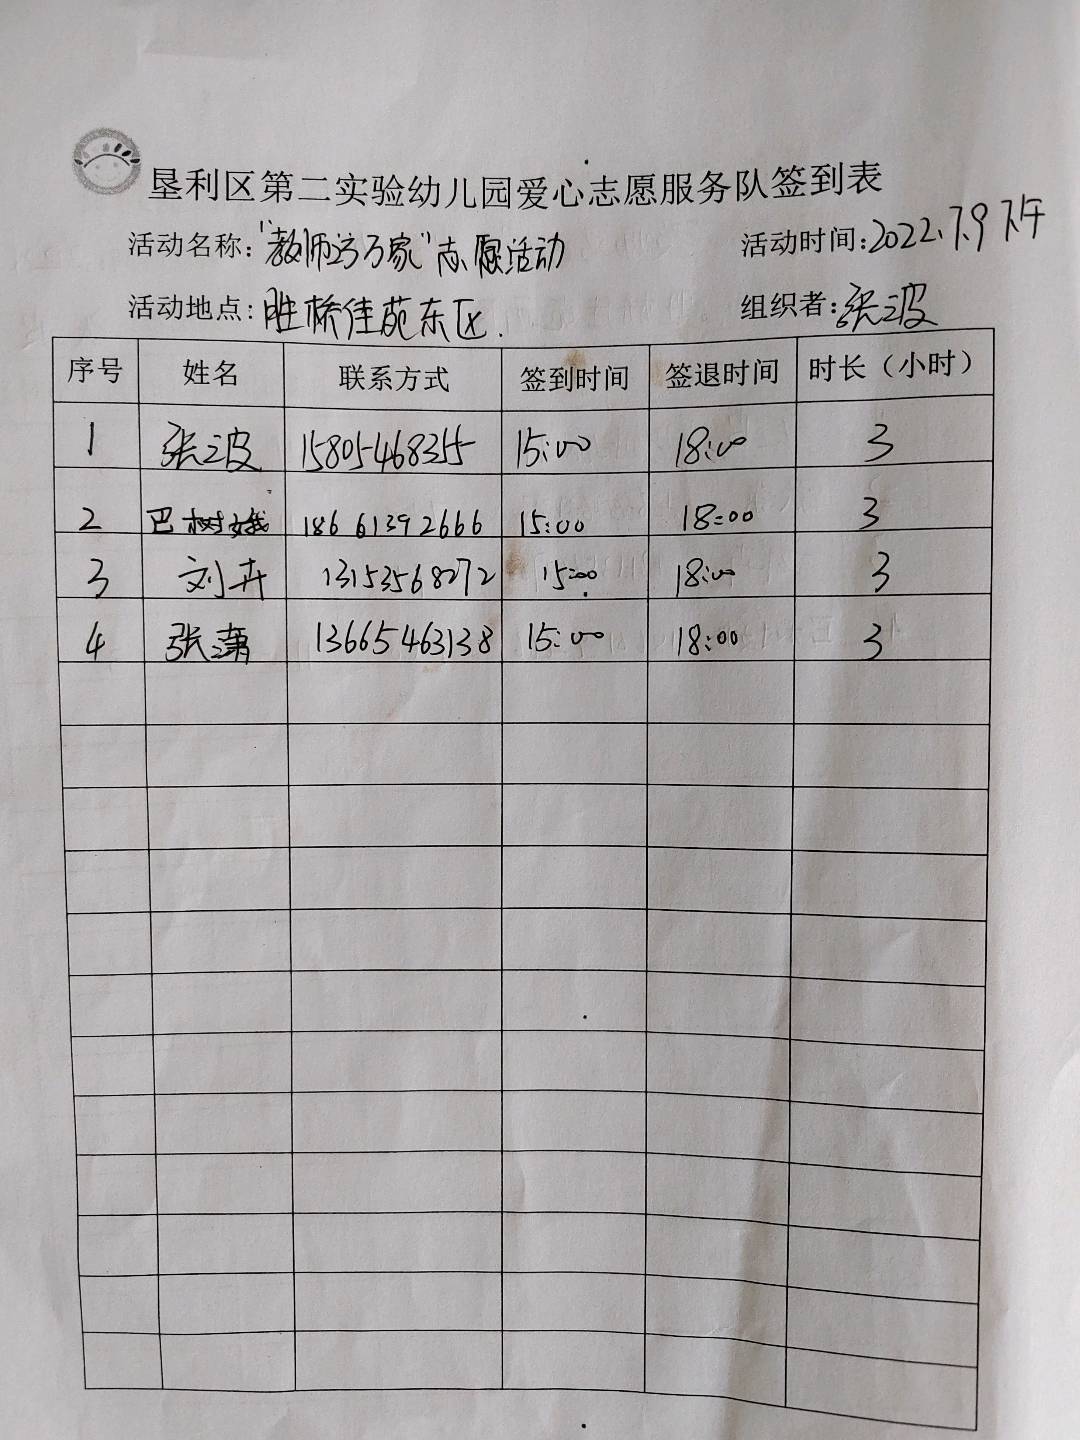 垦利区第二实验幼儿园爱心志愿服务队签到表
活动名称:“教师访万家”志愿活动 活动时间:2022.7.9 下午
活动地点:胜桥佳苑东区. 组织者:张波
序号 姓名 联系方式 签到时间 签退时间 时长（小时）
1 张波 15805468355 15:00 18:00 3
2 巴树娥 18661392666 15:00 18:00 3
3 刘卉 13153568272 15:00 18:00 3
4 张潇 13665463138 15:00 18:00 3